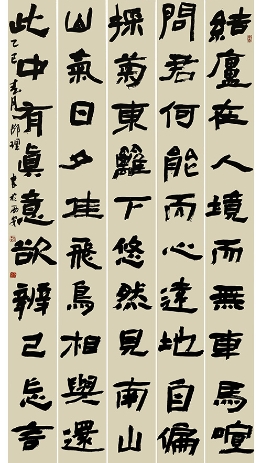 結廬在人境而無車馬喧
問君何能而心遠地自偏
採菊東籬下悠然見南山
山氣日夕佳飛鳥相與還
此中有眞意欲辨已忘言
乙巳春月